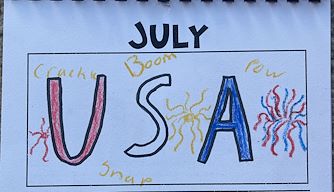 JULY
Crackle Boom Pow
USA
Snap